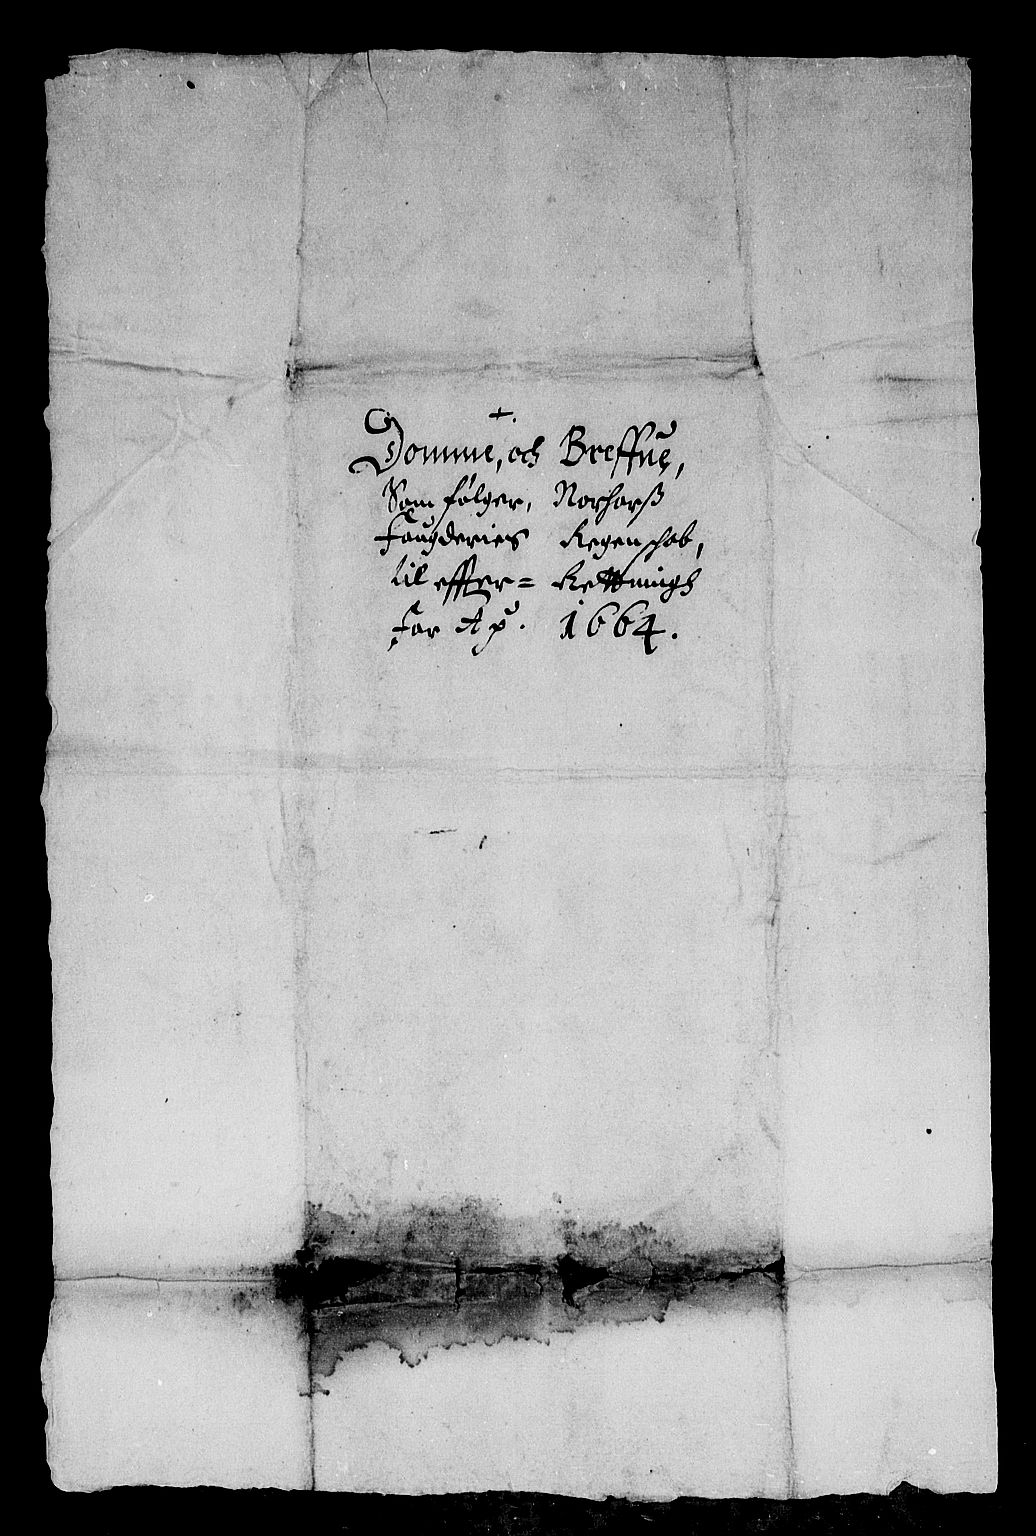 +.
Domme, och Breffue,
Som følger, Norhorß
Fougderies Regenschab,
til effter= Rettningh
for Ao. 1664.